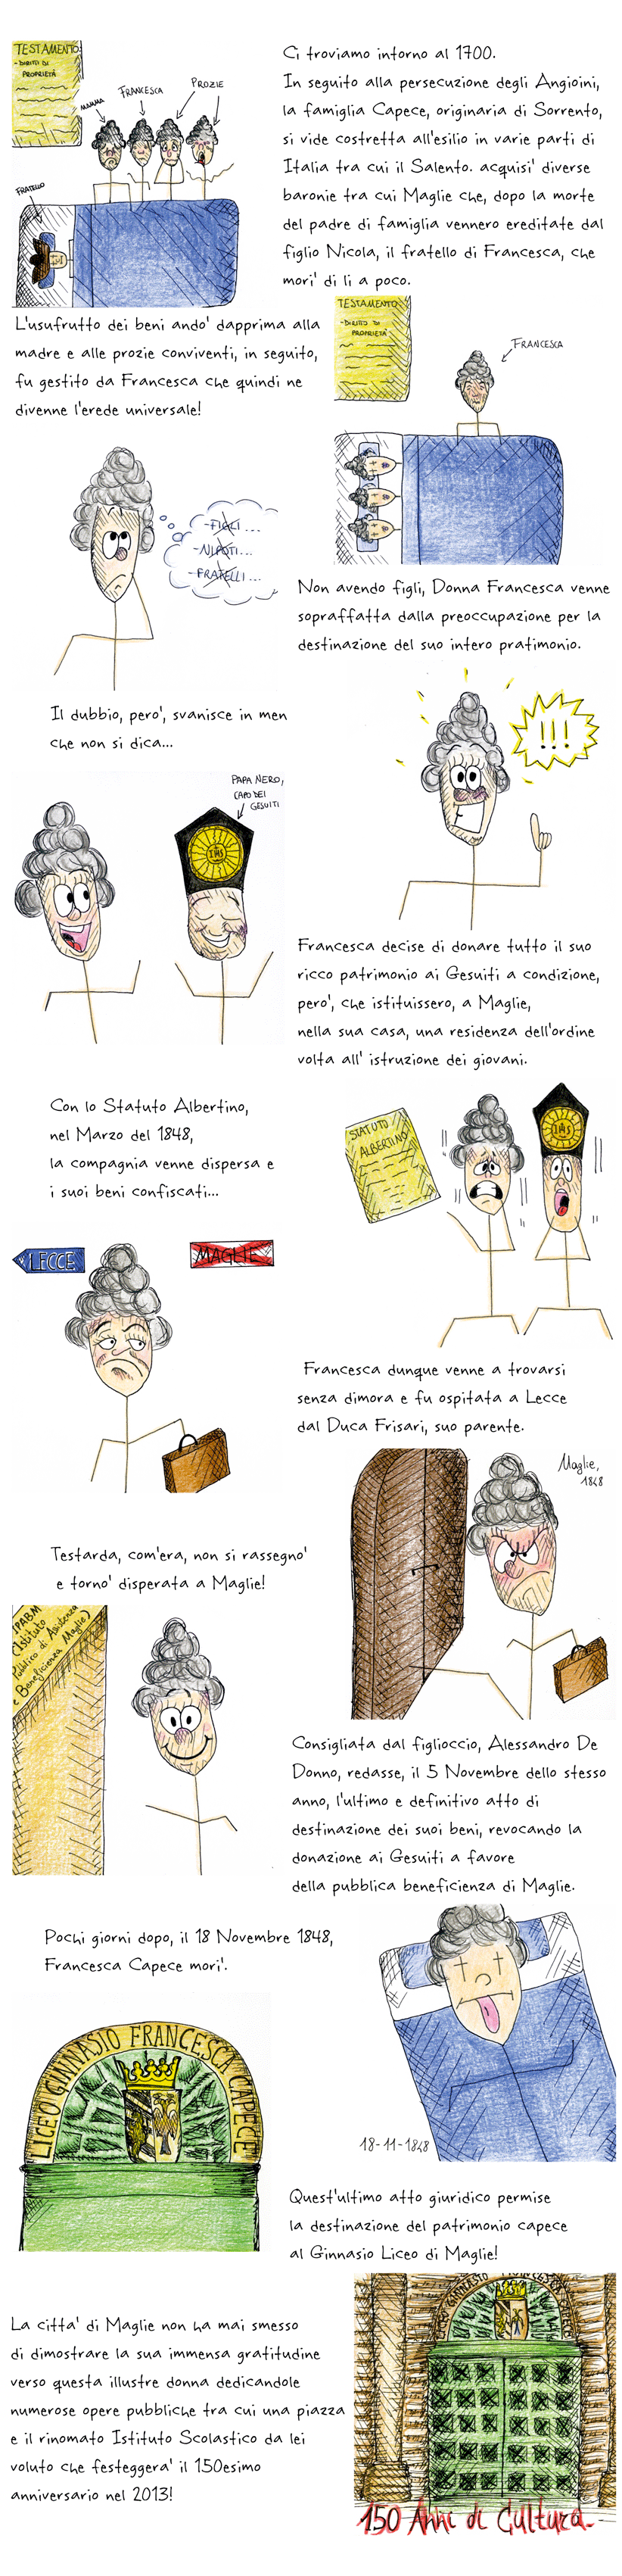 TESTAMENTO
- DIRITTO DI
PROPRIETÀ
MAMMA
FRANCESCA
PROZIE
FRATELLO
Ci troviamo intorno al 1700.
In seguito alla persecuzione degli Angioini,
la famiglia Capece, originaria di Sorrento,
si vide costretta all'esilio in varie parti di
Italia tra cui il Salento. acquisi' diverse
baronie tra cui Maglie che, dopo la morte
del padre di famiglia vennero ereditate dal
figlio Nicola, il fratello di Francesca, che
mori' di li a poco.
L'usufrutto dei beni ando' dapprima alla
madre e alle prozie conviventi, in seguito,
fu gestito da Francesca che quindi ne
divenne l'erede universale!
TESTAMENTO
- DIRITTO DI
PROPRIETÀ
FRANCESCA
- FIGLI ...
- NIPOTI ...
- FRATELLI ...
Non avendo figli, Donna Francesca venne
sopraffatta dalla preoccupazione per la
destinazione del suo intero pratimonio.
Il dubbio, pero', svanisce in men
che non si dica...
!!!
PAPA NERO,
CAPO DEI
GESUITI
IHS
Francesca decise di donare tutto il suo
ricco patrimonio ai Gesuiti a condizione,
pero', che istituissero, a Maglie,
nella sua casa, una residenza dell'ordine
volta all' istruzione dei giovani.
Con lo Statuto Albertino,
nel Marzo del 1848,
la compagnia venne dispersa e
i suoi beni confiscati...
STATUTO
ALBERTINO
IHS
LECCE
MAGLIE
Francesca dunque venne a trovarsi
senza dimora e fu ospitata a Lecce
dal Duca Frisari, suo parente.
Maglie,
1848
Testarda, com'era, non si rassegno'
e torno' disperata a Maglie!
IPABM
(Istituto
Pubblico di Assistenza
e Beneficienza Maglie)
Consigliata dal figlioccio, Alessandro De
Donno, redasse, il 5 Novembre dello stesso
anno, l'ultimo e definitivo atto di
destinazione dei suoi beni, revocando la
donazione ai Gesuiti a favore
della pubblica beneficienza di Maglie.
Pochi giorni dopo, il 18 Novembre 1848,
Francesca Capece mori'.
18-11-1848
LICEO GINNASIO FRANCESCA CAPECE
Quest'ultimo atto giuridico permise
la destinazione del patrimonio capece
al Ginnasio Liceo di Maglie!
LICEO GINNASIO FRANCESCA CAPECE
La citta' di Maglie non ha mai smesso
di dimostrare la sua immensa gratitudine
verso questa illustre donna dedicandole
numerose opere pubbliche tra cui una piazza
e il rinomato Istituto Scolastico da lei
voluto che festeggera' il 150esimo
anniversario nel 2013!
150 Anni di Cultura